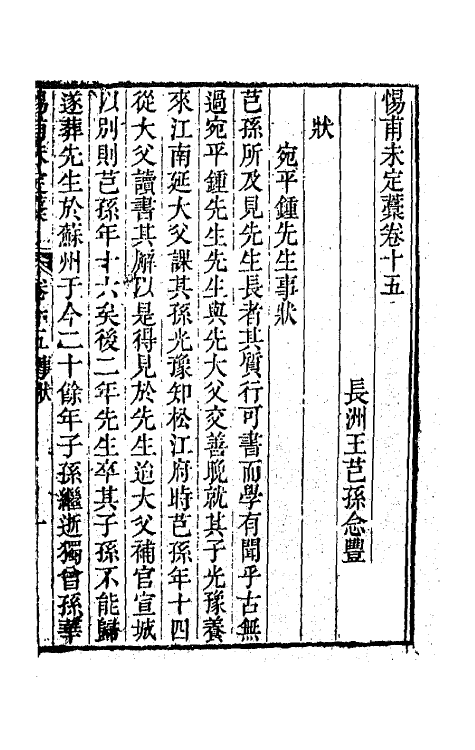 惕甫未定藁卷十五
長洲王芑孫念豐
狀
宛平鍾先生事狀
芑孫所及見先生長者其質行可書而學有聞乎古無
過宛平鍾先生先生與先大父交善晚就其子光豫養
來江南延大父課其孫光豫知松江府時芑孫年十四
從大父讀書其廨以是得見於先生迨大父補官宣城
以別則芑孫年十六矣後二年先生卒其子孫不能歸
遂葬先生於蘇州于今二十餘年子孫繼逝獨曾孫
惕甫未定藁 卷十五 狀